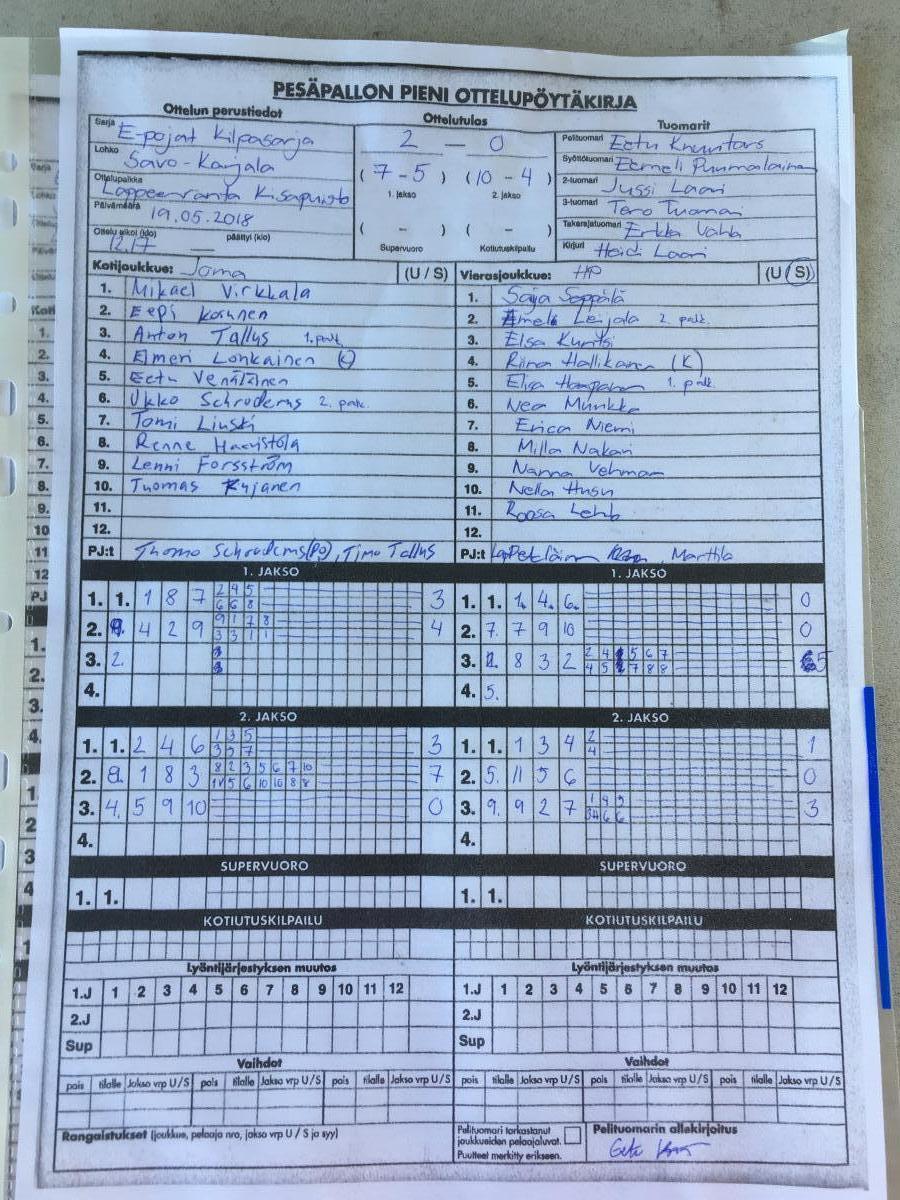 PESÄPALLON PIENI OTTELUPÖYTÄKIRJA
Ottelun perustiedot
Sarja E-pojat Kilpasarja
Lohko Savo-Karjala
Ottelupaikka Lappeenranta Kisapuisto
Päivämäärä 19.05.2018
Ottelu alkoi (klo) 12.17 päättyi (klo)
Ottelutulos
2 — 0
( 7 - 5 ) ( 10 - 4 )
1. jakso 2. jakso
( - ) ( - )
Supervuoro Kotiutuskilpailu
Tuomarit
Pelituomari Eetu
Syöttötuomari Eemeli Puumalainen
2-tuomari Jussi Laari
3-tuomari Tero Tuomai
Takarajatuomari Erkka
Kirjuri Heidi Laari
Kotijoukkue: Joma (U / S)
1. Mikael Virkkala
2. Eepi Kosunen
3. Anton Tallus 1. palk.
4. Elmeri Lonkainen (K)
5. Eetu Venäläinen
6. Ukko Schroderus 2. palk.
7. Tomi Linski
8. Renne Haavistola
9. Lenni Forsström
10. Tuomas
11.
12.
PJ:t Thomo Schroderus (PJ), Timo Tallus
Vierasjoukkue: HP (U / S)
1. Saija Seppälä
2. Ameli Leijala 2. palk.
3. Elsa Kuntsi
4. Riina Hallikainen (K)
5. Elisa 1. palk.
6. Nea Munkka
7. Erica Niemi
8. Milla Nakari
9. Nanna Vehman
10. Nella Husu
11. Roosa
12.
PJ:t Marttila
1. JAKSO
1. 1. 1 8 7 2 4 5 3
6 6 8
2. 4 2 9 9 1 7 8 4
3 3 1 1
3. 2.
4.
1. JAKSO
1. 1. 1. 4. 6. 0
2. 7. 7 9 10 0
3. 8 3 2 2 4 5 6 7 5
4 5 7 8 8
4. 5.
2. JAKSO
1. 1. 2 4 6 1 3 5 3
3 5 7
2. 8. 1 8 3 8 2 3 5 6 7 10 7
11 5 6 10 10 8 8
3. 4. 5 9 10 0
4.
2. JAKSO
1. 1. 1 3 4 2 1
4
2. 5. 11 5 6 0
3. 9. 9 2 7 1 4 5 3
34 6 6
4.
SUPERVUORO
1. 1.
SUPERVUORO
1. 1.
KOTIUTUSKILPAILU
KOTIUTUSKILPAILU
Lyöntijärjestyksen muutos
1.J 1 2 3 4 5 6 7 8 9 10 11 12
2.J
Sup
Lyöntijärjestyksen muutos
1.J 1 2 3 4 5 6 7 8 9 10 11 12
2.J
Sup
Vaihdot
pois tilalle Jakso vrp U/S pois tilalle Jakso vrp U/S pois tilalle Jakso vrp U/S
Vaihdot
pois tilalle Jakso vrp U/S pois tilalle Jakso vrp U/S pois tilalle Jakso vrp U/S
Rangaistukset (joukkue, pelaaja nro, jakso vrp U / S ja syy)
Pelituomari tarkastanut
joukkueiden pelaajaluvat.
Puutteet merkitty erikseen.
Pelituomarin allekirjoitus